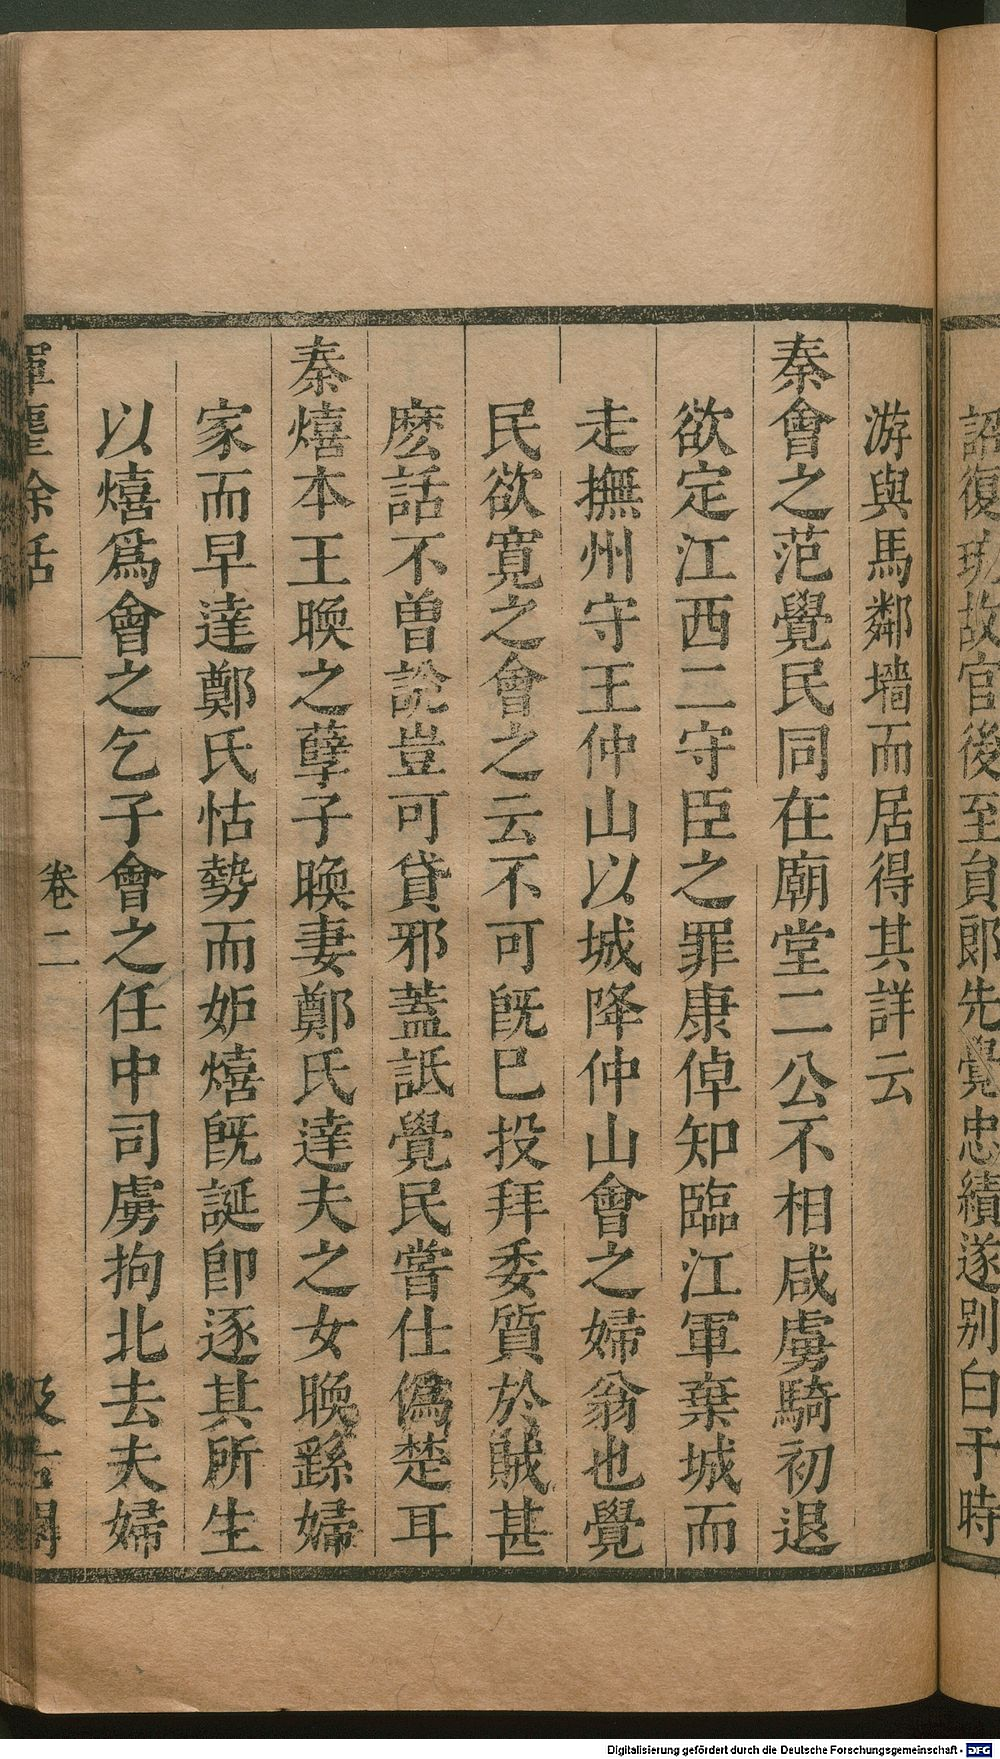 詔復玏故官後至員郎先覺忠績遂别白于時
游與馬鄰墻而居得其詳云
秦會之范覺民同在廟堂二公不相咸虜騎初退
欲定江西二守臣之罪康倬知臨江軍棄城而
走撫州守王仲山以城降仲山會之婦翁也覺
民欲寛之會之云不可旣已投拜委質於賊甚
麽話不曽說豈可貸邪蓋詆覺民嘗仕僞楚耳
秦熺本王晚之孽子晚妻鄭氏達夫之女晚繇婦
家而早達鄭氏怙勢而妒熺旣誕卽逐其所生
以熺爲會之乞子會之任中司虜拘北去夫婦
揮麈餘話
卷二
汲古閣
Digitalisierung gefördert durch die Deutsche Forschungsgemeinschaft - DFG